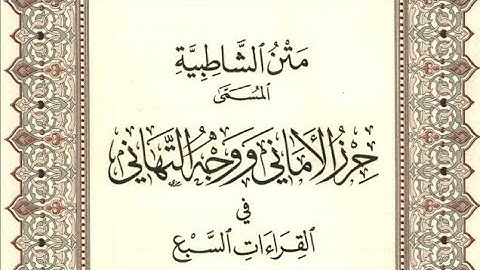 مَتْنُ الشَّاطِبِيَّةِ
المُسَمَّى
حِرْزُ الأَمَانِي وَوَجْهُ التَّهَانِي
فِي
القِرَاءَاتِ السَّبْعِ